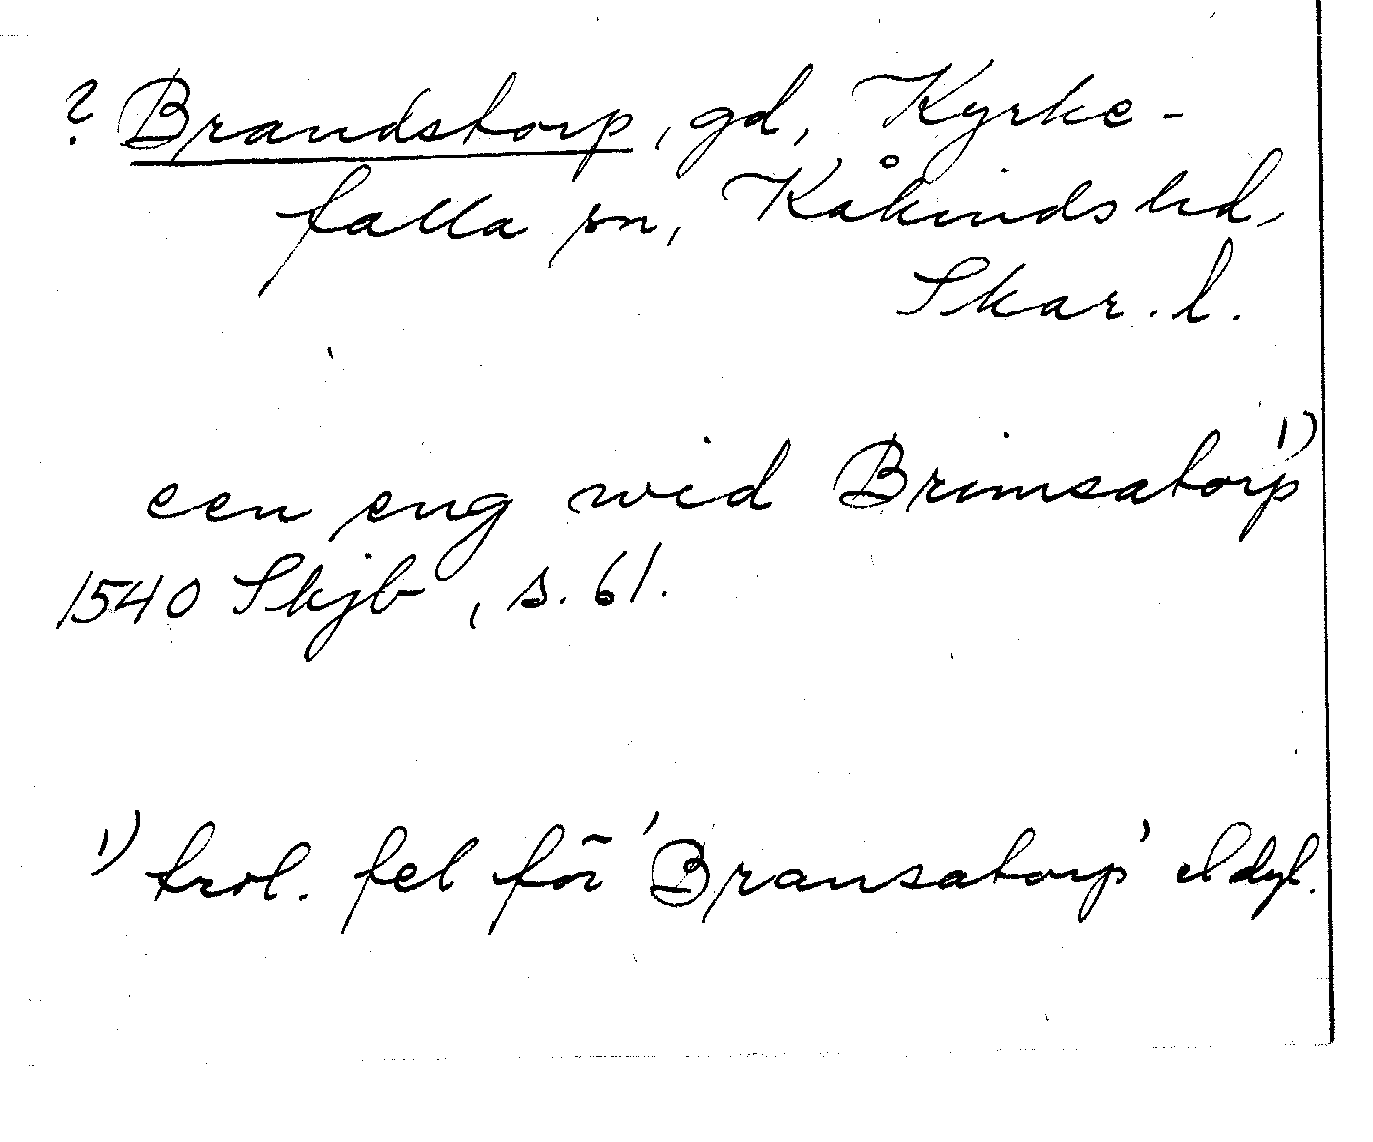 ? Brandstorp, gd, Kyrke-
falla sn, Kåkinds hd,
Skar. l.
een eng wid Brimsatorp 1)
1540 Skjb, s. 61.
1) trol. fel för 'Bransatorp' el dyl.